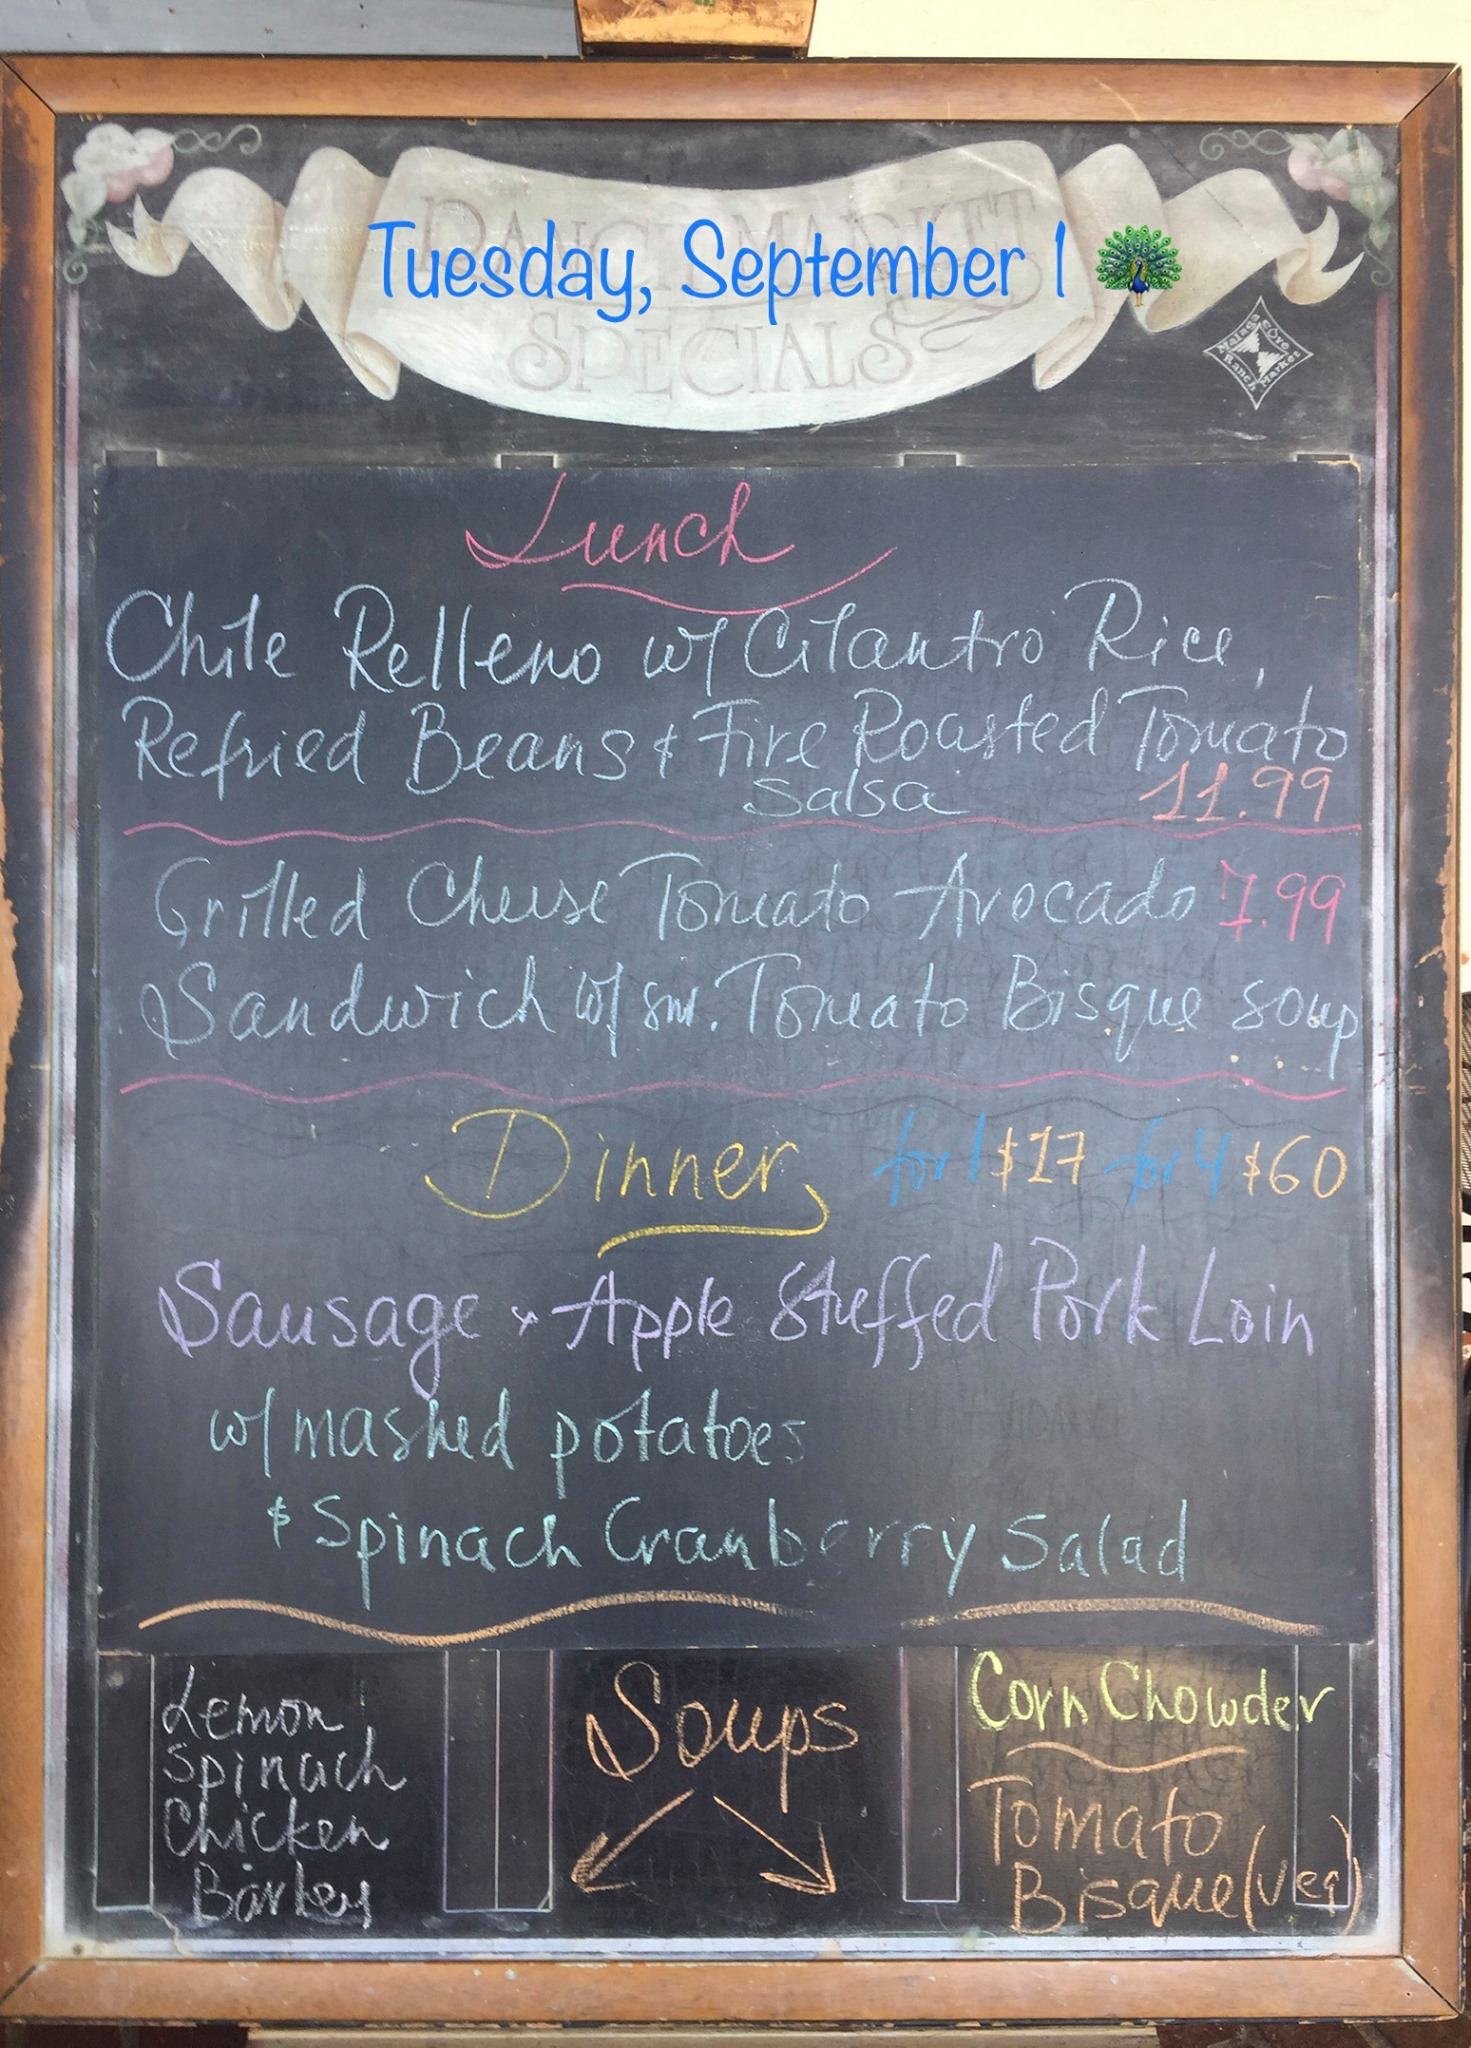 RANCH MARKET
Tuesday, September 1
SPECIALS
Malaga Cove
Ranch Market
Lunch
Chile Relleno w/ Cilantro Rice,
Refried Beans & Fire Roasted Tomato
Salsa 11.99
Grilled Cheese Tomato Avocado 7.99
Sandwich w/ sm. Tomato Bisque soup
Dinner for 1 $17 for 4 $60
Sausage & Apple Stuffed Pork Loin
w/ mashed potatoes
& Spinach Cranberry Salad
Lemon
Spinach
Chicken
Barley
Soups
Corn Chowder
Tomato
Bisque (veg)